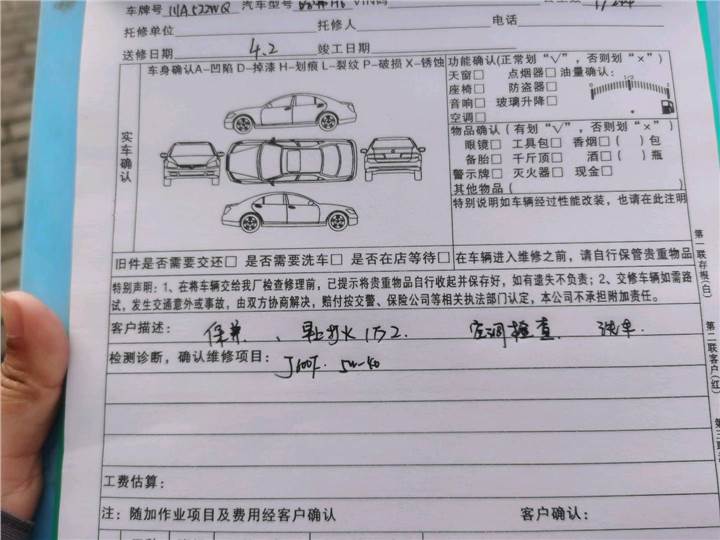 车牌号 川A522WQ 汽车型号 VIN码
托修单位 托修人 电话
送修日期 4.2 竣工日期
车身确认A-凹陷 D-掉漆 H-划痕 L-裂纹 P-破损 X-锈蚀
功能确认(正常划“√”，否则划“×”)
天窗□ 点烟器□ 油量确认:
座椅□ 防盗器□
音响□ 玻璃升降□
空调□
1/2
实车确认
物品确认 (有划“√”，否则划“×”)
眼镜□ 工具包□ 香烟□( )包
备胎□ 千斤顶□ 酒□( )瓶
警示牌□ 灭火器□ 现金□
其他物品( )
特别说明如车辆经过性能改装，也请在此注明
旧件是否需要交还□ 是否需要洗车□ 是否在店等待□
在车辆进入维修之前，请自行保管贵重物品
特别声明：1、在将车辆交给我厂检查修理前，已提示将贵重物品自行收起并保存好，如有遗失不负责；2、交修车辆如需路
试，发生交通意外或事故，由双方协商解决，赔付按交警、保险公司等相关执法部门认定，本公司不承担附加责任。
客户描述： 保养 、早上打火 1万2. 空调检查. 洗车.
检测诊断，确认维修项目： 5w-40
工费估算：
注：随加作业项目及费用经客户确认 客户确认：
第一联存根(白)
第二联客户(红)